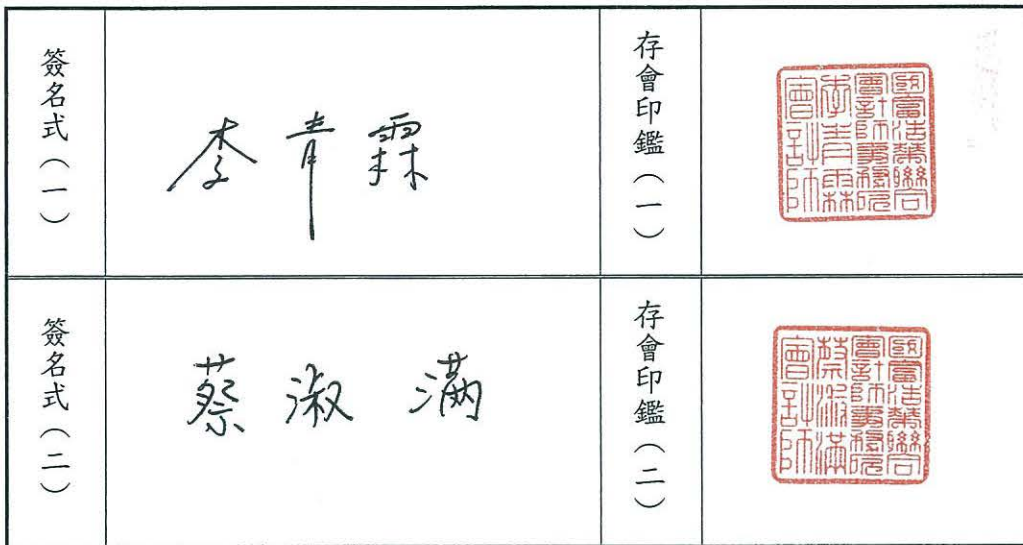 簽名式(一)
李青霖
存會印鑑(一)
國富浩華聯合
會計師事務所
李青霖
會計師
簽名式(二)
蔡淑滿
存會印鑑(二)
國富浩華聯合
會計師事務所
蔡淑滿
會計師